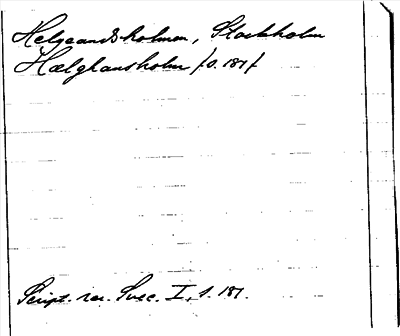 Helgeandsholmen, Stockholm
Hælghansholm /s. 181/
Script. rer. Svec. I, s. 181.